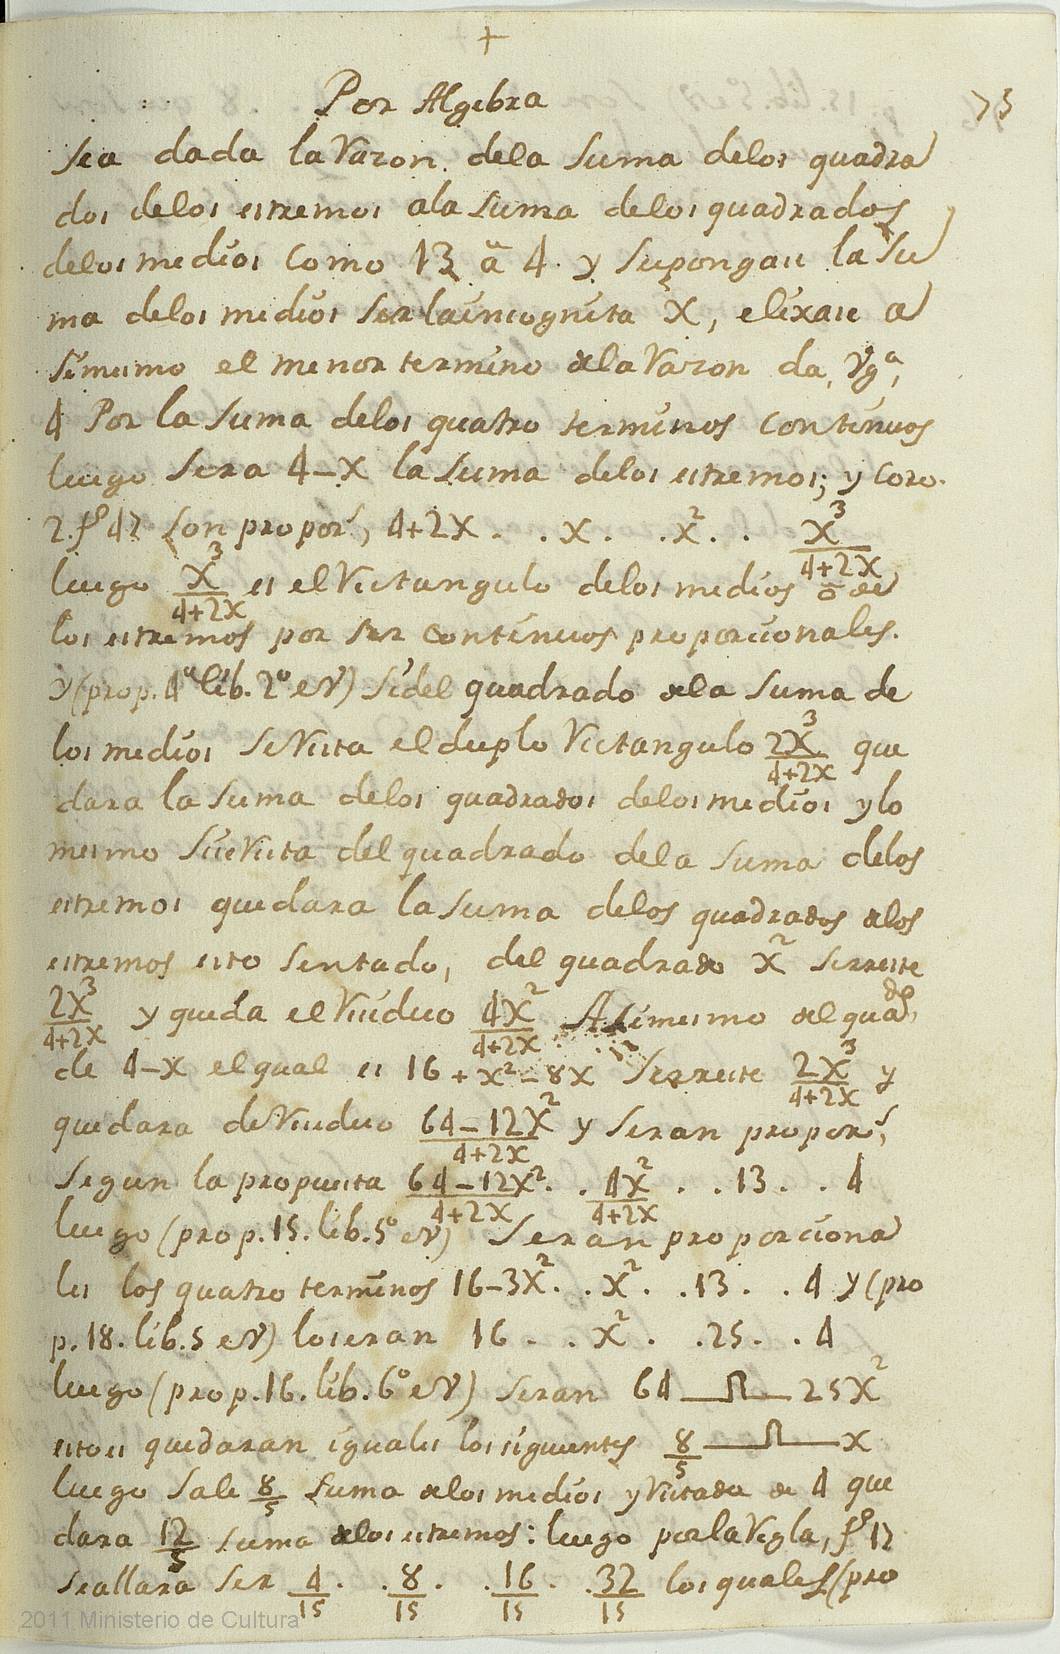 +
Por Algebra
73
sea dada la Razon dela suma delos quadra
dos delos estremos ala suma delos quadrados
delos medios como 13 a 4 y supongase la su
ma delos medios ser la incognita X, elixase a
simismo el menor termino de la Razon da, Vg.ª,
4 Por la suma delos quatro terminos continuos
luego sera 4-X la suma delos estremos; y coro.
2. fº 42 son propor.s, 4+2X . . X . . X² . . X³/4+2X
luego X³/4+2X es el Rectangulo delos medios o de
los estremos por ser continuos proporcionales.
y (prop. 4ª lib. 2º eV) si del quadrado de la suma de
los medios se Resta el duplo Rectangulo 2X³/4+2X que
dara la suma delos quadrados delos medios y lo
mesmo si se Resta del quadrado dela suma delos
estremos quedara la suma delos quadrados delos
estremos esto sentado, del quadrado X² se reste
2X³/4+2X y queda el Residuo 4X²/4+2X. Asimesmo del quadº,
de 4-X el qual es 16+X²-8X se reste 2X³/4+2X y
quedara de Residuo 64-12X²/4+2X y seran propor.s,
segun la propuesta 64-12X²/4+2X . . 4X²/4+2X . . 13 . . 4
luego (prop. 15. lib. 5º eV) seran proporciona
les los quatro terminos 16-3X² . . X² . . 13 . . 4 y (pro
p. 18. lib. 5 eV) lo seran 16 . . X² . . 25 . . 4
luego (prop. 16. lib. 6º eV) seran 64 ⎍ 25X²
esto es quedaran iguales los siguientes 8/5 ⎍ X
luego sale 8/5 suma delos medios y Restada de 4 que
dara 12/5 suma delos estremos: luego por la Regla, fº 12
se allara ser 4/15 . . 8/15 . . 16/15 . . 32/15 los quales (pro
2011 Ministerio de Cultura